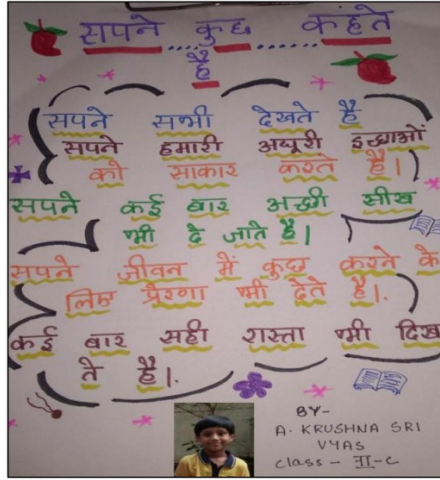 सपने....कुछ.....कहते
है
सपने सभी देखते है
सपने हमारी अधूरी इच्छाओं
को साकार करते है।
सपने कई बार अच्छी सीख
भी दे जाते है।
सपने जीवन में कुछ करने के
लिए प्रेरणा भी देते है।.
कई बार सही रास्ता भी दिखा
ते है।.
BY-
A. KRUSHNA SRI
VYAS
class - VI-C